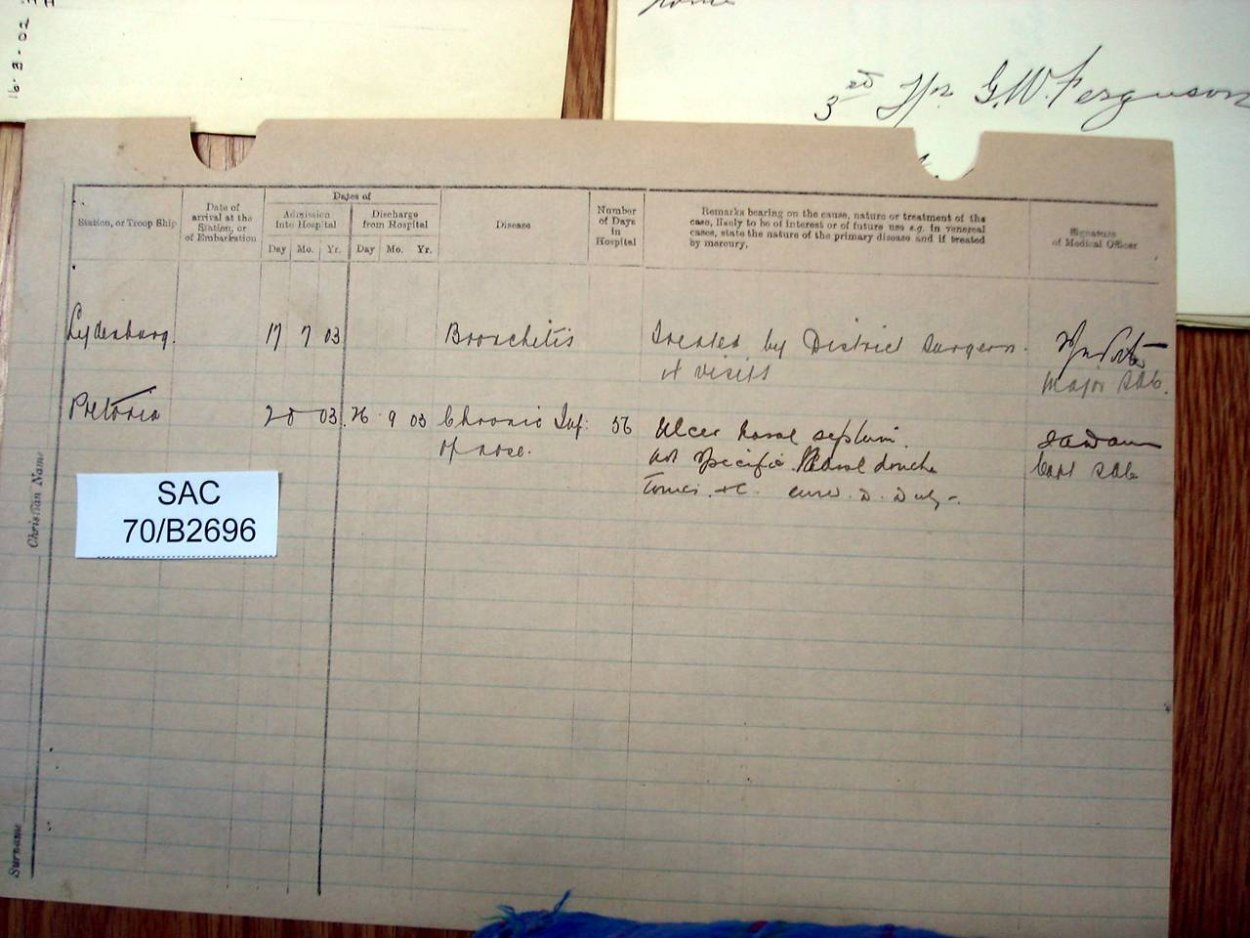 16·3·02
3rd Tpr G.W. Ferguson
Dates of
Station, or Troop Ship
Date of
arrival at the
Station, or
of Embarkation
Admission
into Hospital
Discharge
from Hospital
Disease
Number
of Days
in
Hospital
Remarks bearing on the cause, nature or treatment of the
case, likely to be of interest or of future use e.g. in venereal
cases, state the nature of the primary disease and if treated
by mercury.
Signature
of Medical Officer
Day Mo. Yr. Day Mo. Yr.
Lydenburg. 17 7 03 Bronchitis Treated by District Surgeon.
visits
Major SAC.
Pretoria 03. 26 9 03 Chronic Inf: 56 Ulcer nasal septum.
of nose. not specific. Nasal douche
Capt SAC
Tonics &c.
SAC
70/B2696
Christian Name
Surname